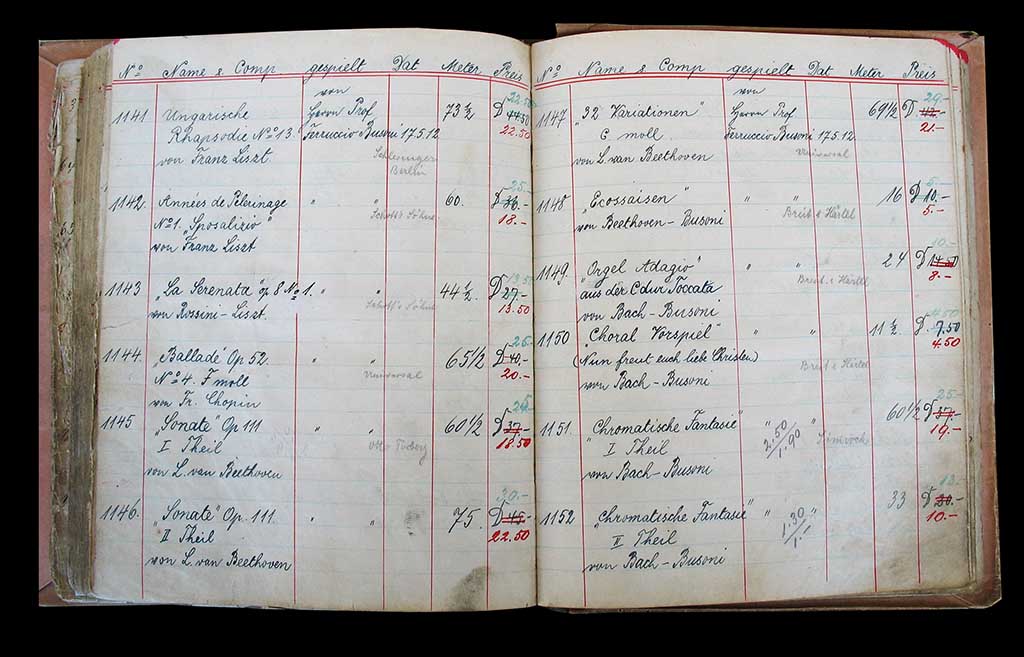 No Name & Comp gespielt Dat Meter Preis
von 22.50
1141 Ungarische Herrn Prof 73 ½ D 44.50
Rhapsodie No 13. Ferruccio Busoni 17.5.12. 22.50
von Franz Liszt. Schlesinger
Berlin
25.-
1142. Années de Pélerinage " " 60. D 36.-
No 1. "Sposalizio" Schott's Söhne 18.-
von Franz Liszt.
13.50
1143 "La Serenata" op 8 No 1. " " 44 ½ D 27.-
von Rossini-Liszt. Schott's Söhne 13.50
25.-
1144. "Ballade" Op 52. " " 65 1/2 D 40.-
No 4. F moll Universal 20.-
von Fr. Chopin
25.-
1145 "Sonate" Op 111 " " 60 1/2 D 37.-
I Theil Otto 18.50
von L. van Beethoven
30.-
1146. "Sonate" Op. 111. " " 75. D 45.-
II Theil 22.50
von L. van Beethoven
No Name & Comp gespielt Dat Meter Preis
von 29.-
1147 "32 Variationen" Herrn Prof 69 1/2 D 42.-
C moll Ferruccio Busoni 17.5.12. 21.-
von L. van Beethoven Universal
5.-
1148 "Ecossaisen" " " 16 D 10.-
von Beethoven-Busoni Breit & Härtel 5.-
10.-
1149. "Orgel Adagio" " " 24 D
aus der C dur Toccata Breit. & Härtel 8.-
von Bach-Busoni
4.50
1150 "Choral Vorspiel" " " 11 ½ D. 7.50
(Nun freut euch liebe Christen) Breit & Härtel 4.50
von Bach-Busoni
25.-
1151. "Chromatische Fantasie" " " 60 1/2 D 37.-
I Theil 2.50 Simrock 19.-
von Bach-Busoni 1.90
13.-
1152 "Chromatische Fantasie" " " 33 D 20.-
II Theil 1.30 10.-
von Bach-Busoni 1.-